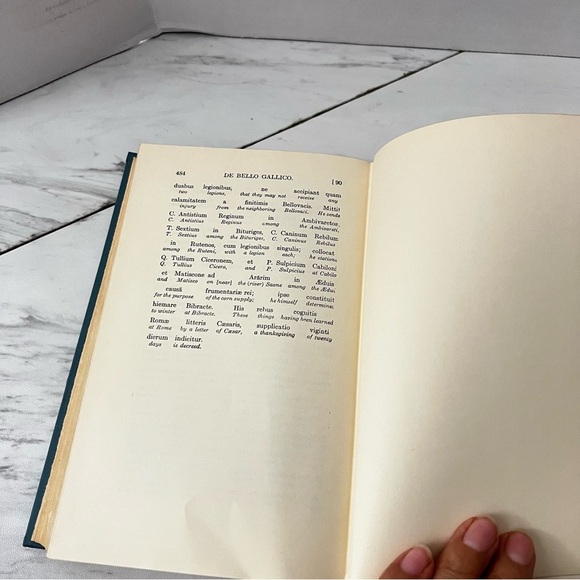 484 DE BELLO GALLICO. [90
duabus legionibus, ne accipiant quam
two legions, that they may not receive any
calamitatem a finitimis Bellovacis. Mittit
injury from the neighboring Bellovaci. He sends
C. Antistium Reginum in Ambivaretos,
C. Antistius Reginus among the Ambivareti,
T. Sextium in Bituriges, C. Caninum Rebilum
T. Sextius among the Bituriges, C. Caninus Rebilus
in Rutenos, cum legionibus singulis; collocat
among the Ruteni, with a legion each; he stations
Q. Tullium Ciceronem, et P. Sulpicium Cabiloni
Q. Tullius Cicero, and P. Sulpicius at Cabilo
et Matiscone ad Ararim in Æduis
and Matisco on [near] the (river) Saone among the Ædui
causâ frumentariæ rei; ipse constituit
for the purpose of the corn supply; he himself determines
hiemare Bibracte. His rebus cognitis
to winter at Bibracte. These things having been learned
Romæ litteris Cæsaris, supplicatio viginti
at Rome by a letter of Cæsar, a thanksgiving of twenty
dierum indicitur.
days is decreed.